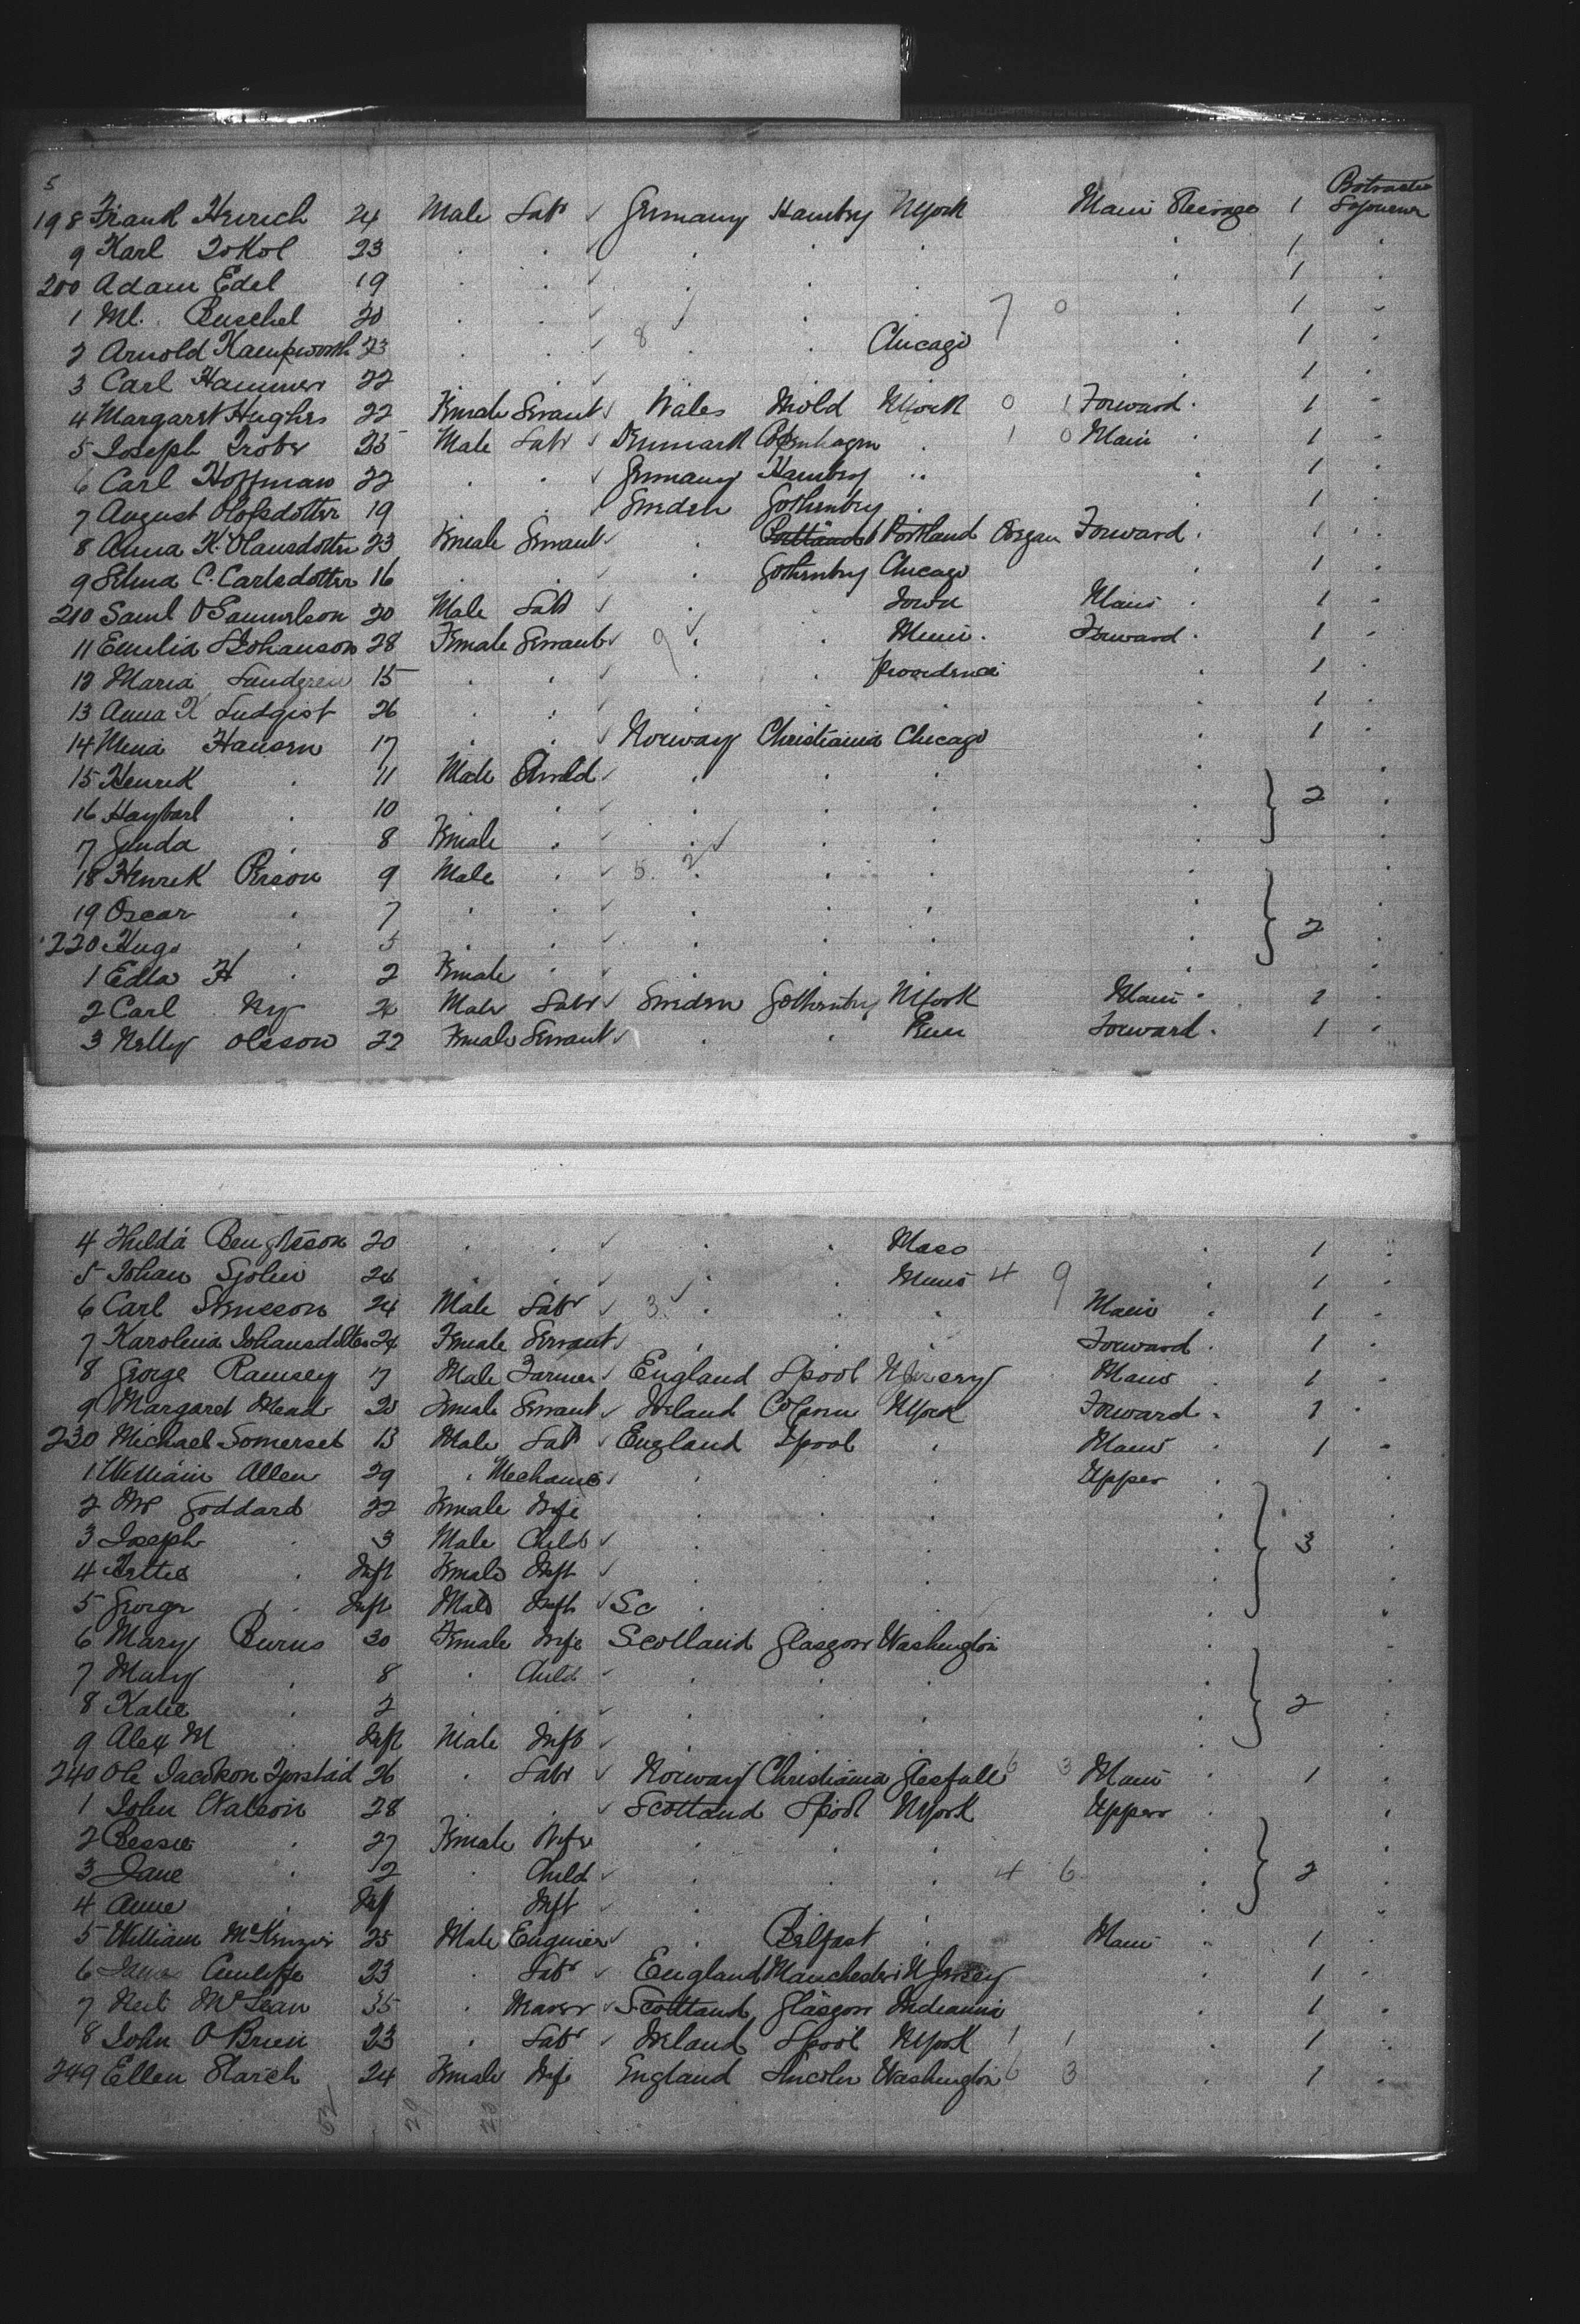 5
Protracted
198 Frank Heinrich 24 Male Labr ✓ Germany Hambrg N York Main Steerage 1 Sojourner
9 Karl 23 . . ✓ . . . . 1 .
200 Adam Edel 19 . . ✓ . . . . 1 .
1 Ml. Buschel 20 . . ✓ . . . 7 0 . 1 .
2 Arnold Kaempworth 23 . . ✓ 8 . . Chicago . 1 .
3 Carl Hammer 22 . . ✓ . . . . 1 .
4 Margaret Hughes 22 Female Servant ✓ Wales Mold N York 0 1 Forward . 1 .
5 Joseph 25 Male Labr ✓ Denmark Copenhagen . 1 0 Main . 1 .
6 Carl Hoffman 22 . . ✓ Germany Hambrg " . 1 .
7 August Olofsdotter 19 . . ✓ Sweden Gothenbrg . . 1 .
8 Anna K. Olausdotter 23 Female Servant ✓ . Portland Oregan Forward . 1 .
9 Selma C. Carlsdotter 16 . . ✓ . Gothenbrg Chicago . 1 .
210 Saml O Samuelson 20 Male Labr ✓ . . Iowa Main . 1 .
11 Emilia S Johanson 28 Female Servant ✓ 9 . . Minn. Forward . 1 .
12 Maria Lundgren 15 . . ✓ . . Providence . 1 .
13 Anna K Ludqist 26 . . ✓ . . . . 1 .
14 Mina Hansen 17 . . ✓ Norway Christiania Chicago . 1 .
15 Henrik . 11 Male Child ✓ . . . . .
16 Haybarl . 10 . . ✓ . . . . 2 .
7 Gunda . 8 Female . ✓ . . . . .
18 Henrik Person 9 Male . ✓ 5. 2 . . . .
19 Oscar . 7 . . ✓ . . . . .
220 Hugo . 5 . . ✓ . . . . 2 .
1 Edla H . 2 Female . ✓ . . . . .
2 Carl Ny 24 Male Labr ✓ Sweden Gothenbrg N York Main . 1 .
3 Nelly Olsson 22 Female Servant ✓ . . Penn Forward . 1 .
4 Hulda Bengtsson 20 . . ✓ . . Mass . 1 .
5 Johan Sjolin 24 . . ✓ . . Minn 4 9 . 1 .
6 Carl Svensson 24 Male Labr ✓ 3. . . . Main . 1 .
7 Karolina Johansdotter 24 Female Servant ✓ . . . Forward . 1 .
8 George Ramsey 17 Male Farmer ✓ England Lpool N Jersey Main . 1 .
9 Margaret Mead 20 Female Servant ✓ Ireland N York Forward . 1 .
230 Michael Somerset 13 Male Labr ✓ England Lpool . Main . 1 .
1 William Allen 29 . Mechanic ✓ . . . Upper . .
2 Mrs Goddard 22 Female Wife . . . . .
3 Joseph . 3 Male Child ✓ . . . . 3 .
4 Nettie . Inft Female Inft ✓ . . . . .
5 George . Inft Male Inft ✓ Sc . . . . .
6 Mary Burns 30 Female Wife Scotland Glasgow Washington . .
7 Mary . 8 . Child ✓ . . . . .
8 Katie . 2 . . ✓ . . . . 2 .
9 Alex M . Inft Male Inft ✓ . . . . .
240 Ole Jacobson 26 . Labr ✓ Norway Christiania 6 3 Main . 1 .
1 John Watson 28 . . ✓ Scotland Lpool N York Upper . .
2 Bessie . 27 Female Wife . . . . .
3 Jane . 2 . Child ✓ . . . 4 6 . 2 .
4 Anne . Inf . Inft ✓ . . . . .
5 William McKenzie 25 Male Engineer ✓ . Belfast . Main . 1 .
6 James Cunliffe 23 . Labr ✓ England Manchester N Jersey . 1 .
7 Neil McLean 35 . Weaver ✓ Scotland Glasgow Indianna . 1 .
8 John O Brien 23 . Labr ✓ Ireland Lpool N York 1 1 . 1 .
249 Ellen March 24 Female Wife England Lincoln Washington 6 3 . 1 .